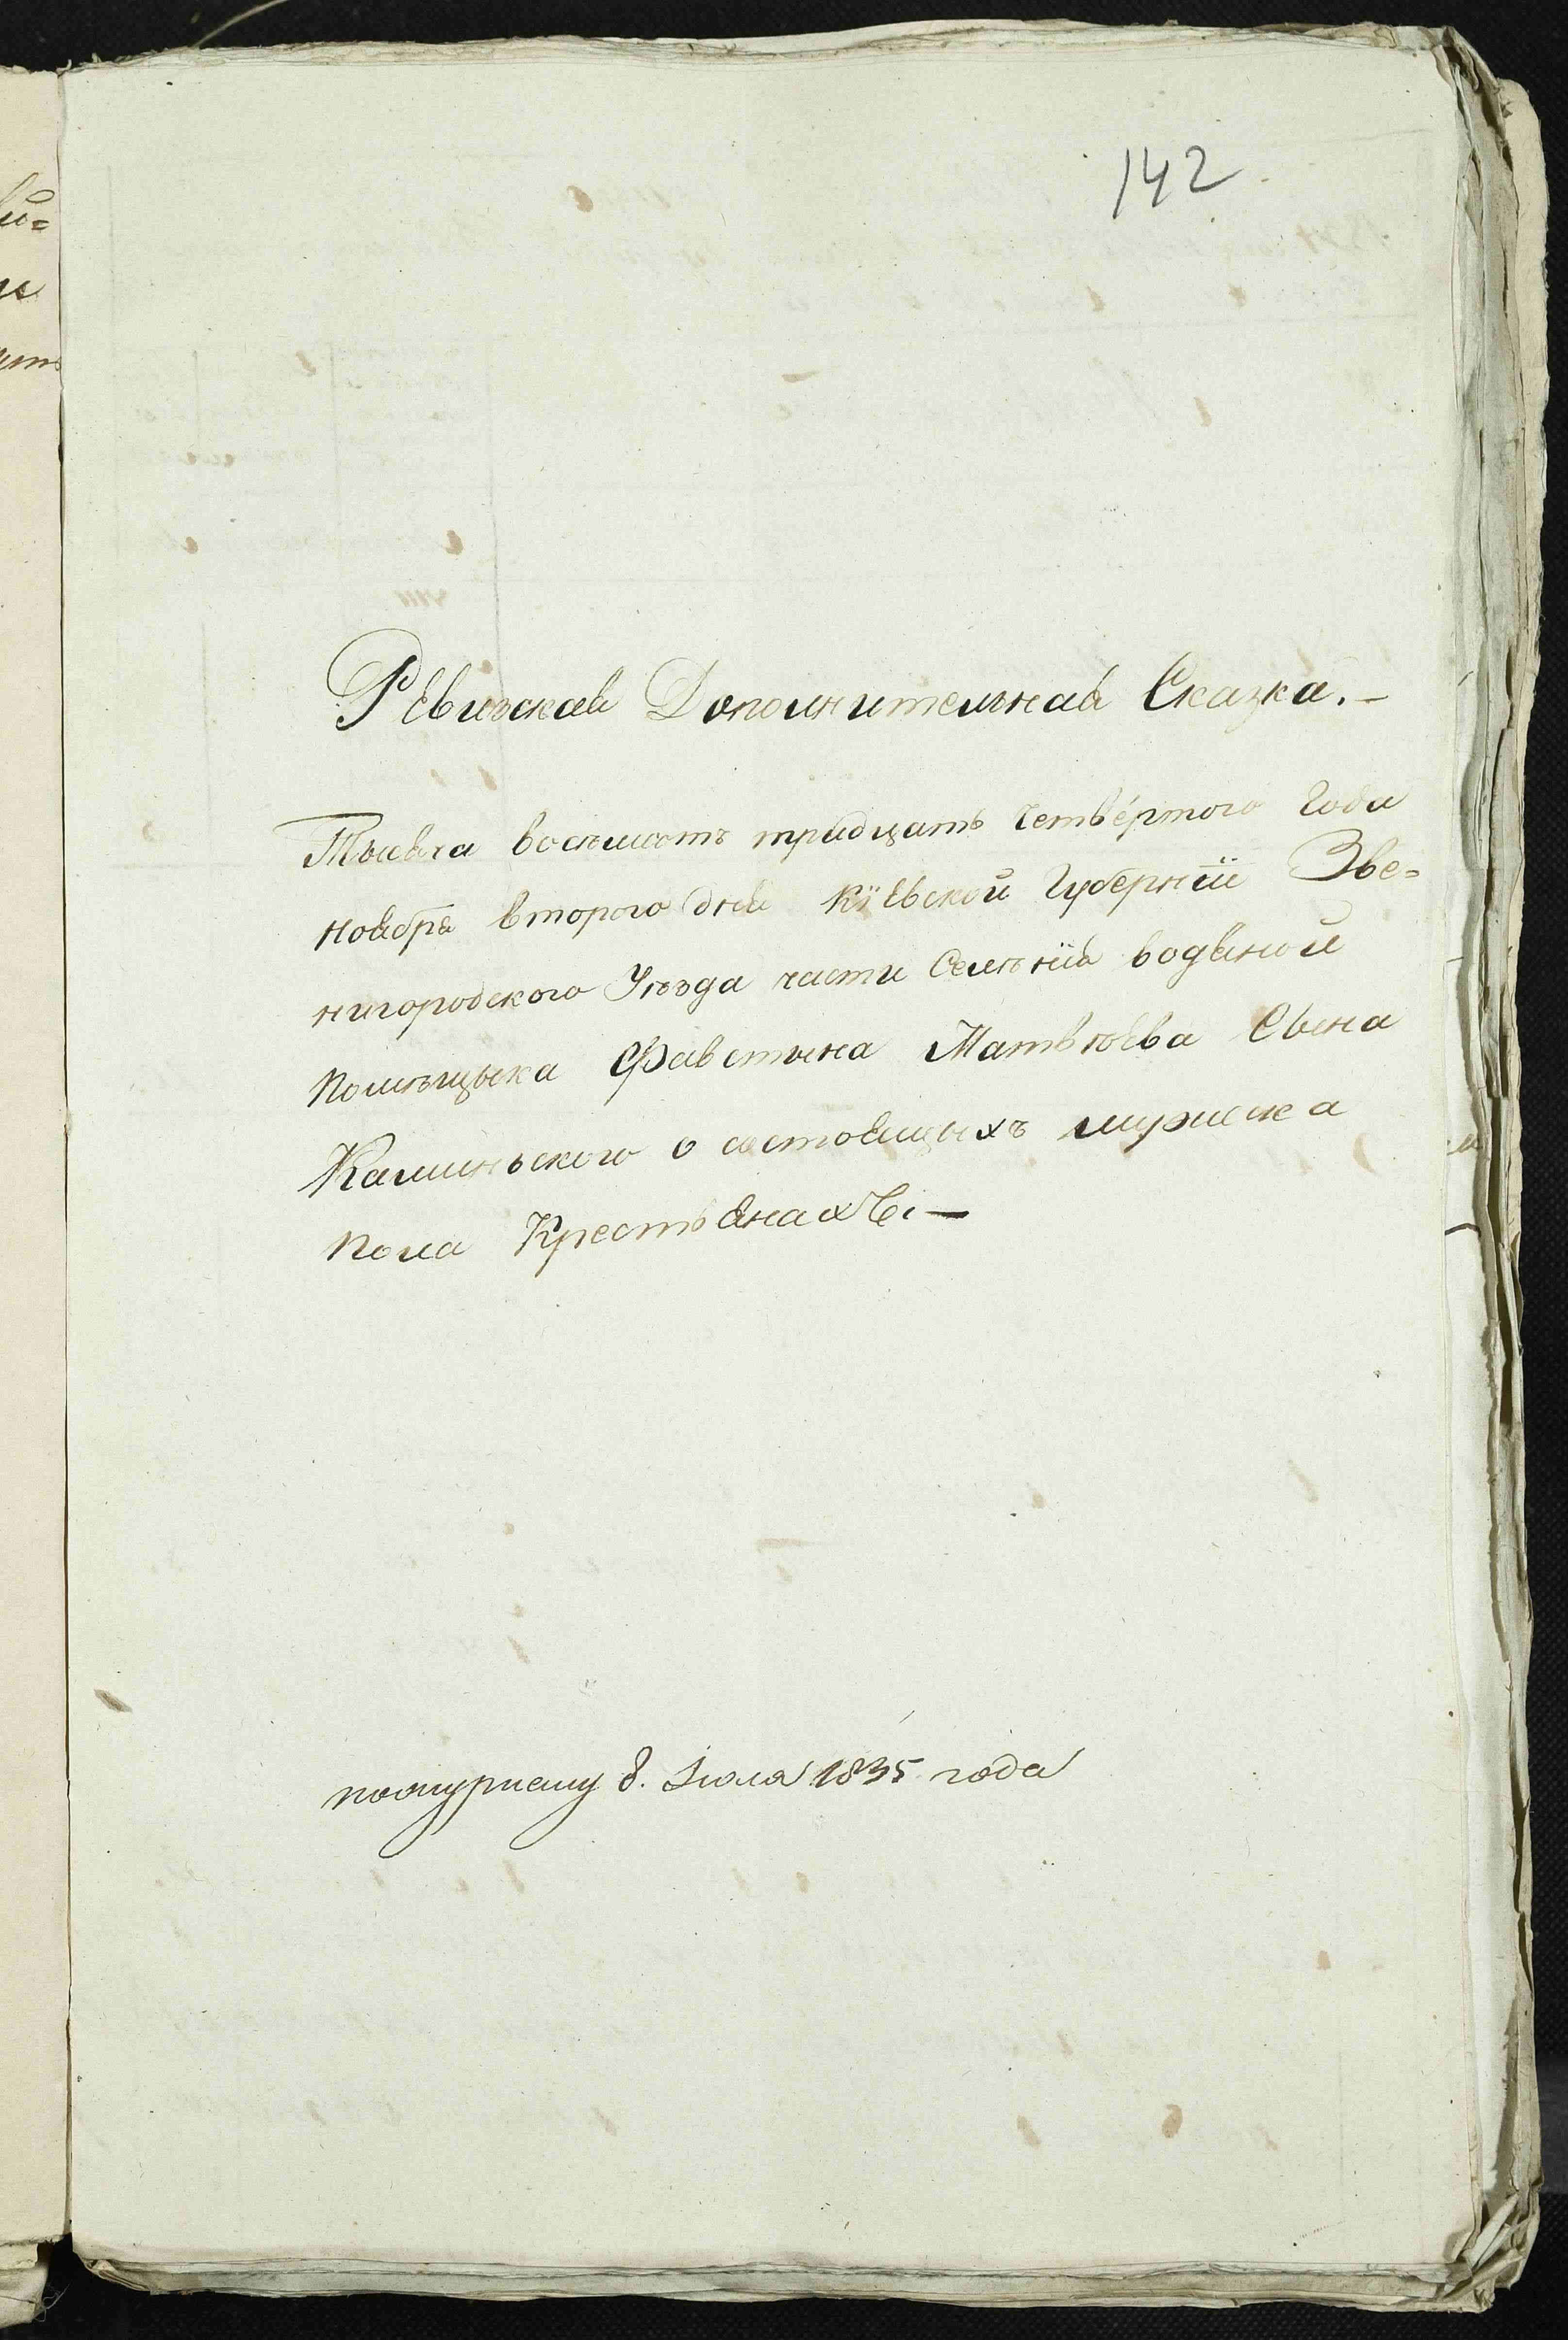 142
Ревизская Дополнительная Сказка.-
Тысяча восѣмсотъ тридцать Четвёртого Года
ноября второго дня Кїевской Губернїи Зве=
нигородского Уѣзда части Селѣнїя водяной
Помѣщыка Фавстына Матвѣева Сына
Каминьского о состоящыхъ мужеска
пола Крестьянахъ.—
8. Іюля 1835 года